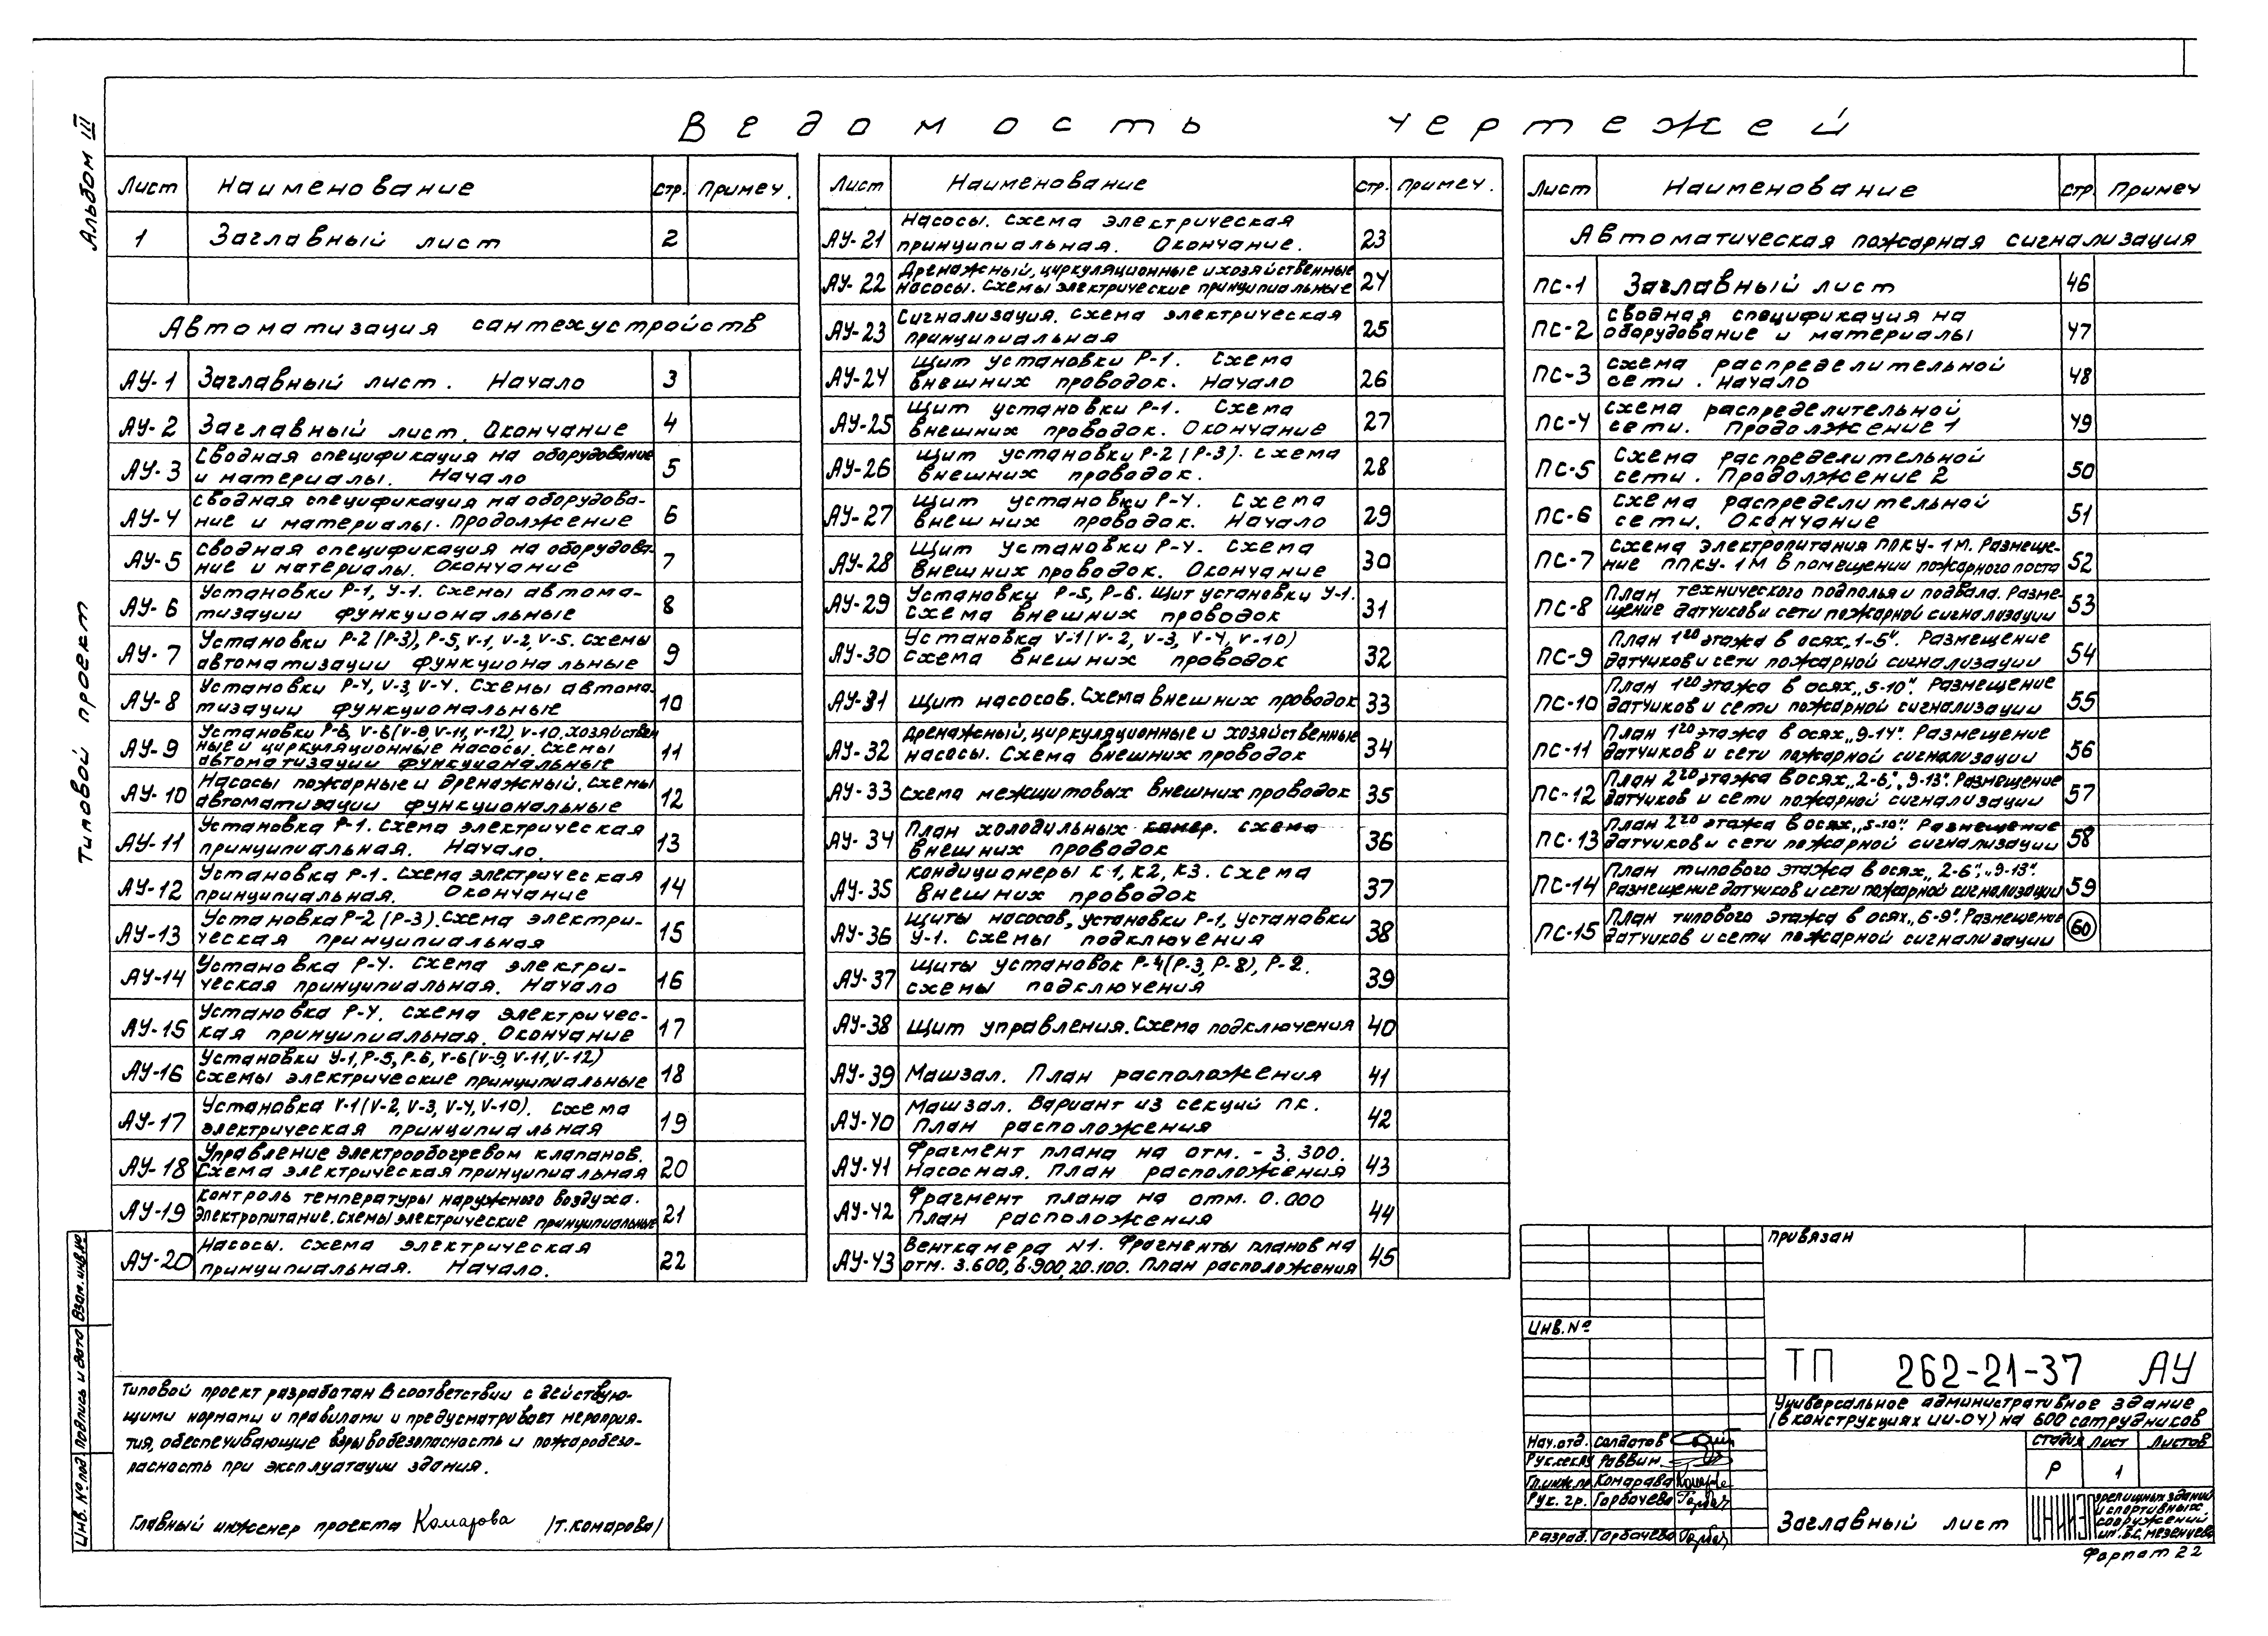 Альбом III
Типовой проект
Ведомость чертежей
Лист Наименование стр. Примеч.
1 Заглавный лист 2
Автоматизация сантехустройств
АУ-1 Заглавный лист. Начало 3
АУ-2 Заглавный лист. Окончание 4
АУ-3 Сводная спецификация на оборудование
и материалы. Начало 5
АУ-4 Сводная спецификация на оборудова-
ние и материалы. Продолжение 6
АУ-5 Сводная спецификация на оборудова-
ние и материалы. Окончание 7
АУ-6 Установки Р-1, У-1. Схемы автома-
тизации функциональные 8
АУ-7 Установки Р-2 (Р-3), Р-5, V-1, V-2, V-5. Схемы
автоматизации функциональные 9
АУ-8 Установки Р-4, V-3, V-4. Схемы автома-
тизации функциональные 10
АУ-9 Установки Р-6, V-6 (V-9, V-11, V-12), V-10, хозяйствен
ные и циркуляционные насосы. Схемы
автоматизации функциональные 11
АУ-10 Насосы пожарные и дренажный. Схемы
автоматизации функциональные 12
АУ-11 Установка Р-1. Схема электрическая
принципиальная. Начало. 13
АУ-12 Установка Р-1. Схема электрическая
принципиальная. Окончание 14
АУ-13 Установка Р-2 (Р-3). Схема электри-
ческая принципиальная 15
АУ-14 Установка Р-4. Схема электри-
ческая принципиальная. Начало 16
АУ-15 Установка Р-4. Схема электричес-
кая принципиальная. Окончание 17
АУ-16 Установки У-1, Р-5, Р-6, V-6 (V-9, V-11, V-12)
Схемы электрические принципиальные 18
АУ-17 Установка V-1 (V-2, V-3, V-4, V-10). Схема
электрическая принципиальная 19
АУ-18 Управление электрообогревом клапанов.
Схема электрическая принципиальная 20
АУ-19 Контроль температуры наружного воздуха.
Электропитание. Схемы электрические принципиальные 21
АУ-20 Насосы. Схема электрическая
принципиальная. Начало. 22
Лист Наименование стр. Примеч.
АУ-21 Насосы. Схема электрическая
принципиальная. Окончание. 23
АУ-22 Дренажный, циркуляционные и хозяйственные
насосы. Схемы электрические принципиальные 24
АУ-23 Сигнализация. Схема электрическая
принципиальная 25
АУ-24 Щит установки Р-1. Схема
внешних проводок. Начало 26
АУ-25 Щит установки Р-1. Схема
внешних проводок. Окончание 27
АУ-26 Щит установки Р-2 (Р-3). Схема
внешних проводок. 28
АУ-27 Щит установки Р-4. Схема
внешних проводок. Начало 29
АУ-28 Щит установки Р-4. Схема
внешних проводок. Окончание 30
АУ-29 Установки Р-5, Р-6. Щит установки У-1.
Схема внешних проводок 31
АУ-30 Установка V-1 (V-2, V-3, V-4, V-10)
Схема внешних проводок 32
АУ-31 Щит насосов. Схема внешних проводок 33
АУ-32 Дренажный, циркуляционные и хозяйственные
насосы. Схема внешних проводок 34
АУ-33 Схема межщитовых внешних проводок 35
АУ-34 План холодильных камер. Схема
внешних проводок 36
АУ-35 Кондиционеры К1, К2, К3. Схема
внешних проводок 37
АУ-36 Щиты насосов, установки Р-1, установки
У-1. Схемы подключения 38
АУ-37 Щиты установок Р-4 (Р-3, Р-8), Р-2.
Схемы подключения 39
АУ-38 Щит управления. Схема подключения 40
АУ-39 Машзал. План расположения 41
АУ-40 Машзал. Вариант из секций ПК.
План расположения 42
АУ-41 Фрагмент плана на отм. -3.300.
Насосная. План расположения 43
АУ-42 Фрагмент плана на отм. 0.000
План расположения 44
АУ-43 Венткамера N1. Фрагменты планов на
отм. 3.600, 6.900, 20.100. План расположения 45
Лист Наименование стр. Примеч
Автоматическая пожарная сигнализация
ПС-1 Заглавный лист 46
ПС-2 Сводная спецификация на
оборудование и материалы 47
ПС-3 Схема распределительной
сети. Начало 48
ПС-4 Схема распределительной
сети. Продолжение 1 49
ПС-5 Схема распределительной
сети. Продолжение 2 50
ПС-6 Схема распределительной
сети. Окончание 51
ПС-7 Схема электропитания ППКУ-1М. Размеще-
ние ППКУ-1М в помещении пожарного поста 52
ПС-8 План технического подполья и подвала. Разме-
щение датчиков и сети пожарной сигнализации 53
ПС-9 План 1го этажа в осях „1-5". Размещение
датчиков и сети пожарной сигнализации 54
ПС-10 План 1го этажа в осях „5-10". Размещение
датчиков и сети пожарной сигнализации 55
ПС-11 План 1го этажа в осях „9-14". Размещение
датчиков и сети пожарной сигнализации 56
ПС-12 План 2го этажа в осях „2-6", „9-13". Размещение
датчиков и сети пожарной сигнализации 57
ПС-13 План 2го этажа в осях „5-10". Размещение
датчиков и сети пожарной сигнализации 58
ПС-14 План типового этажа в осях „2-6", „9-13".
Размещение датчиков и сети пожарной сигнализации 59
ПС-15 План типового этажа в осях „6-9". Размещение
датчиков и сети пожарной сигнализации 60
Типовой проект разработан в соответствии с действую-
щими нормами и правилами и предусматривает мероприя-
тия, обеспечивающие взрывобезопасность и пожаробезо-
пасность при эксплуатации здания.
Главный инженер проекта Комарова /Т. Комарова/
Инв. № под. Подпись и дата Взам. инв. №
Привязан
Инв. №
ТП 262-21-37 АУ
Универсальное административное здание
(в конструкциях ИИ-04) на 600 сотрудников
Нач. отд. Солдатов
Рук. сек. АУ Раввин
Гл. инж. пр. Комарова
Рук. гр. Горбачева
Разраб. Горбачева
Стадия Лист Листов
Р 1
Заглавный лист
ЦНИИЭП
зрелищных зданий
и спортивных
сооружений
им. Б.С. Мезенцева
Формат 22